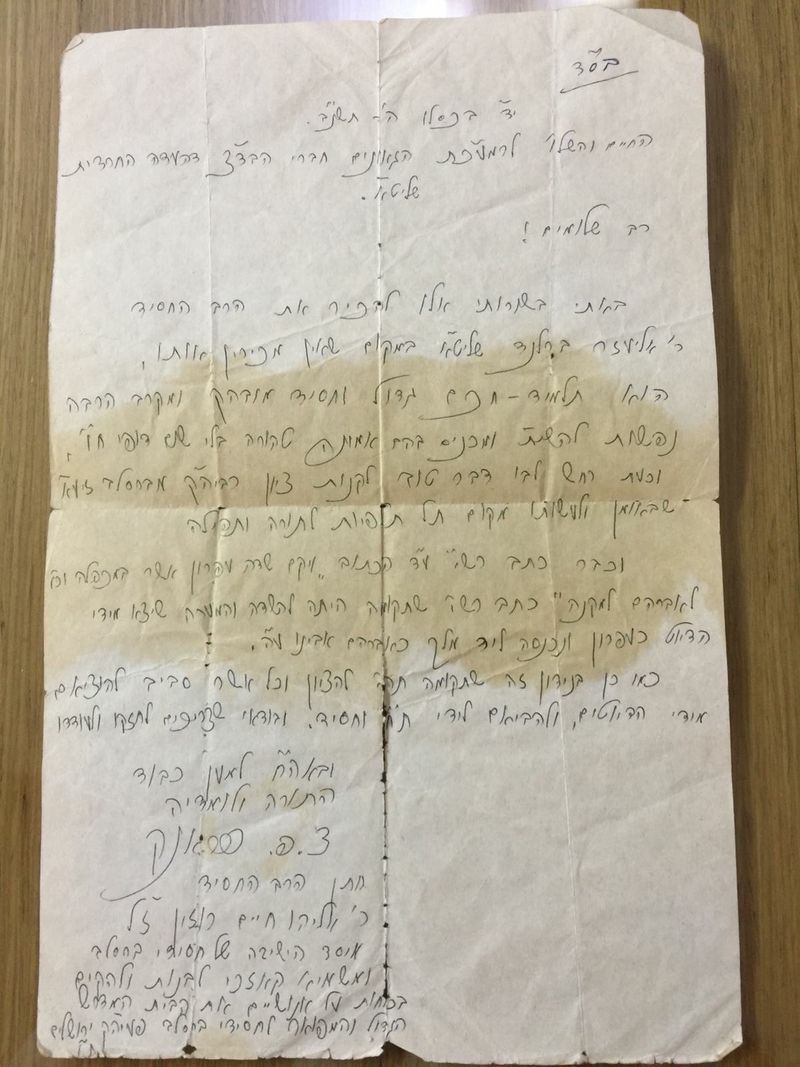 בס"ד
י"ד בכסלו ה' תשנ"ב.
החיים והשלו' למערכת הגאונים חברי הבד"צ דהעדה החרדית
שליט"א.
רב שלומים!
באתי בשורותי אלו להכיר את הרב החסיד
ר' אליעזר ברלנד שליט"א במקום שאין מכירין אותו,
הוא תלמיד-חכם גדול וחסיד מובהק ומקרב הרבה
נפשות להשי"ת ומכניס בהם אמונה טהורה בלי שום דופי ח"ו,
וכעת רחש לבו דבר טוב לקנות ציון רביה"ק מברסלב זיע"א
שבאומן ולעשותו מקום תל תלפיות לתורה ותפילה
וכבר כתב רש"י ע"ד הכתוב "ויקם שדה עפרון אשר במכפלה וכו'
לאברהם למקנה" כתב רש"י שתקומה היתה להשדה והמערה שיצאו מידי
הדיוט כעפרון ונכנסה ליד מלך כאברהם אבינו ע"ה.
כמו כן בנידון זה שתקומה תהי' להציון וכל אשר סביב להוציאם
מידי הדיוטים, ולהביאם לידי ת"ח וחסיד. ובודאי שצריכים לחזקו ולעודדו
ובאה"ח למען כבוד
התורה ולומדיה
צ.פ.
חתן הרב החסיד
ר' אליהו חיים רוזין ז"ל
מיסד הישיבה של חסידי ברסלב
לבנות ולהקים
את בית המדרש
הגדול והמפואר לחסידי ברסלב פעיה"ק ירושלים